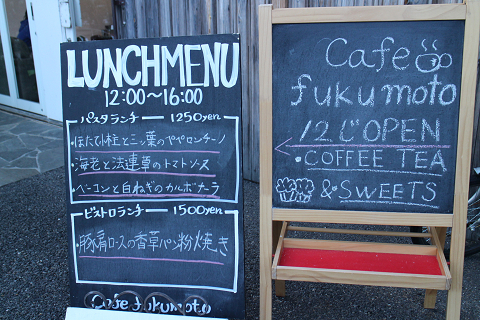 LUNCHMENU
12:00〜16:00
パスタランチ 1250yen
・ほたて小柱と三ッ葉のペペロンチーノ
・海老と法連草のトマトソース
・ベーコンと白ねぎのカルボナーラ
ビストロランチ 1500yen
・豚肩ロースの香草パン粉焼き
Cafe fukumoto
Cafe
fukumoto
12じOPEN
・COFFEE TEA
&・SWEETS